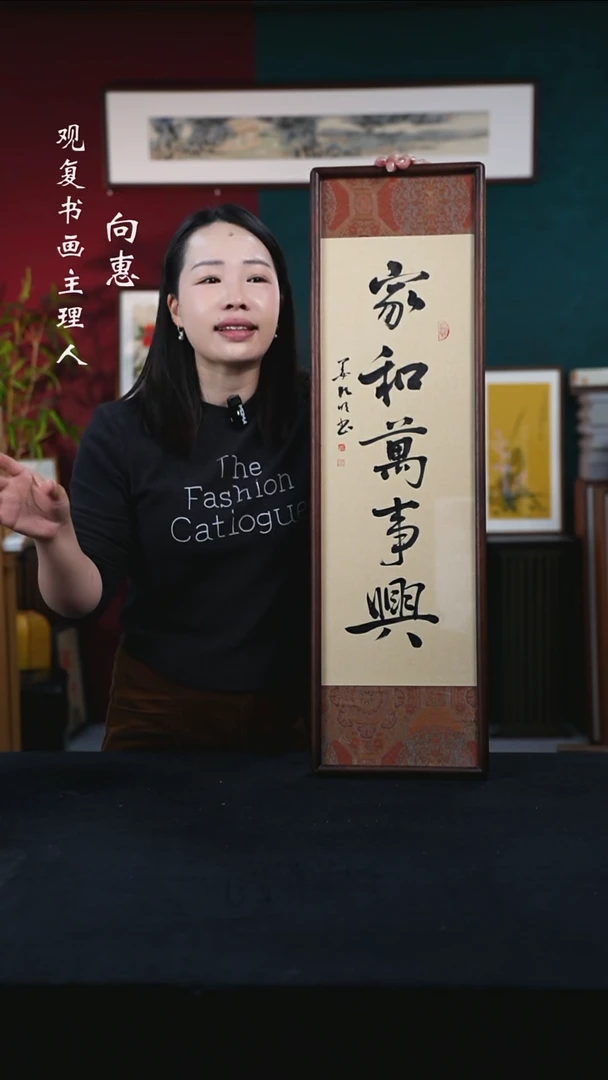 观复书画主理人
向惠
The
Fashion
Catiogue
家和萬事興